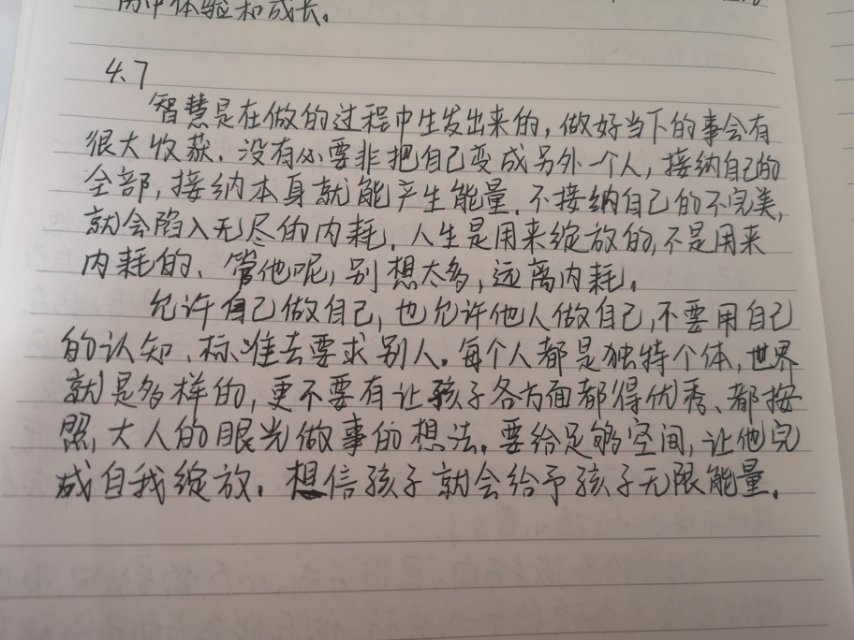 体验和成长。
4.7
智慧是在做的过程中生发出来的,做好当下的事会有
很大收获。没有必要非把自己变成另外一个人,接纳自己的
全部,接纳本身就能产生能量。不接纳自己的不完美,
就会陷入无尽的内耗。人生是用来绽放的,不是用来
内耗的、管他呢,别想太多,远离内耗。
允许自己做自己,也允许他人做自己,不要用自己
的认知、标准去要求别人。每个人都是独特个体,世界
就是多样的,更不要有让孩子各方面都得优秀、都按
照大人的眼光做事的想法。要给足够空间,让他完
成自我绽放。想信孩子就会给予孩子无限能量。